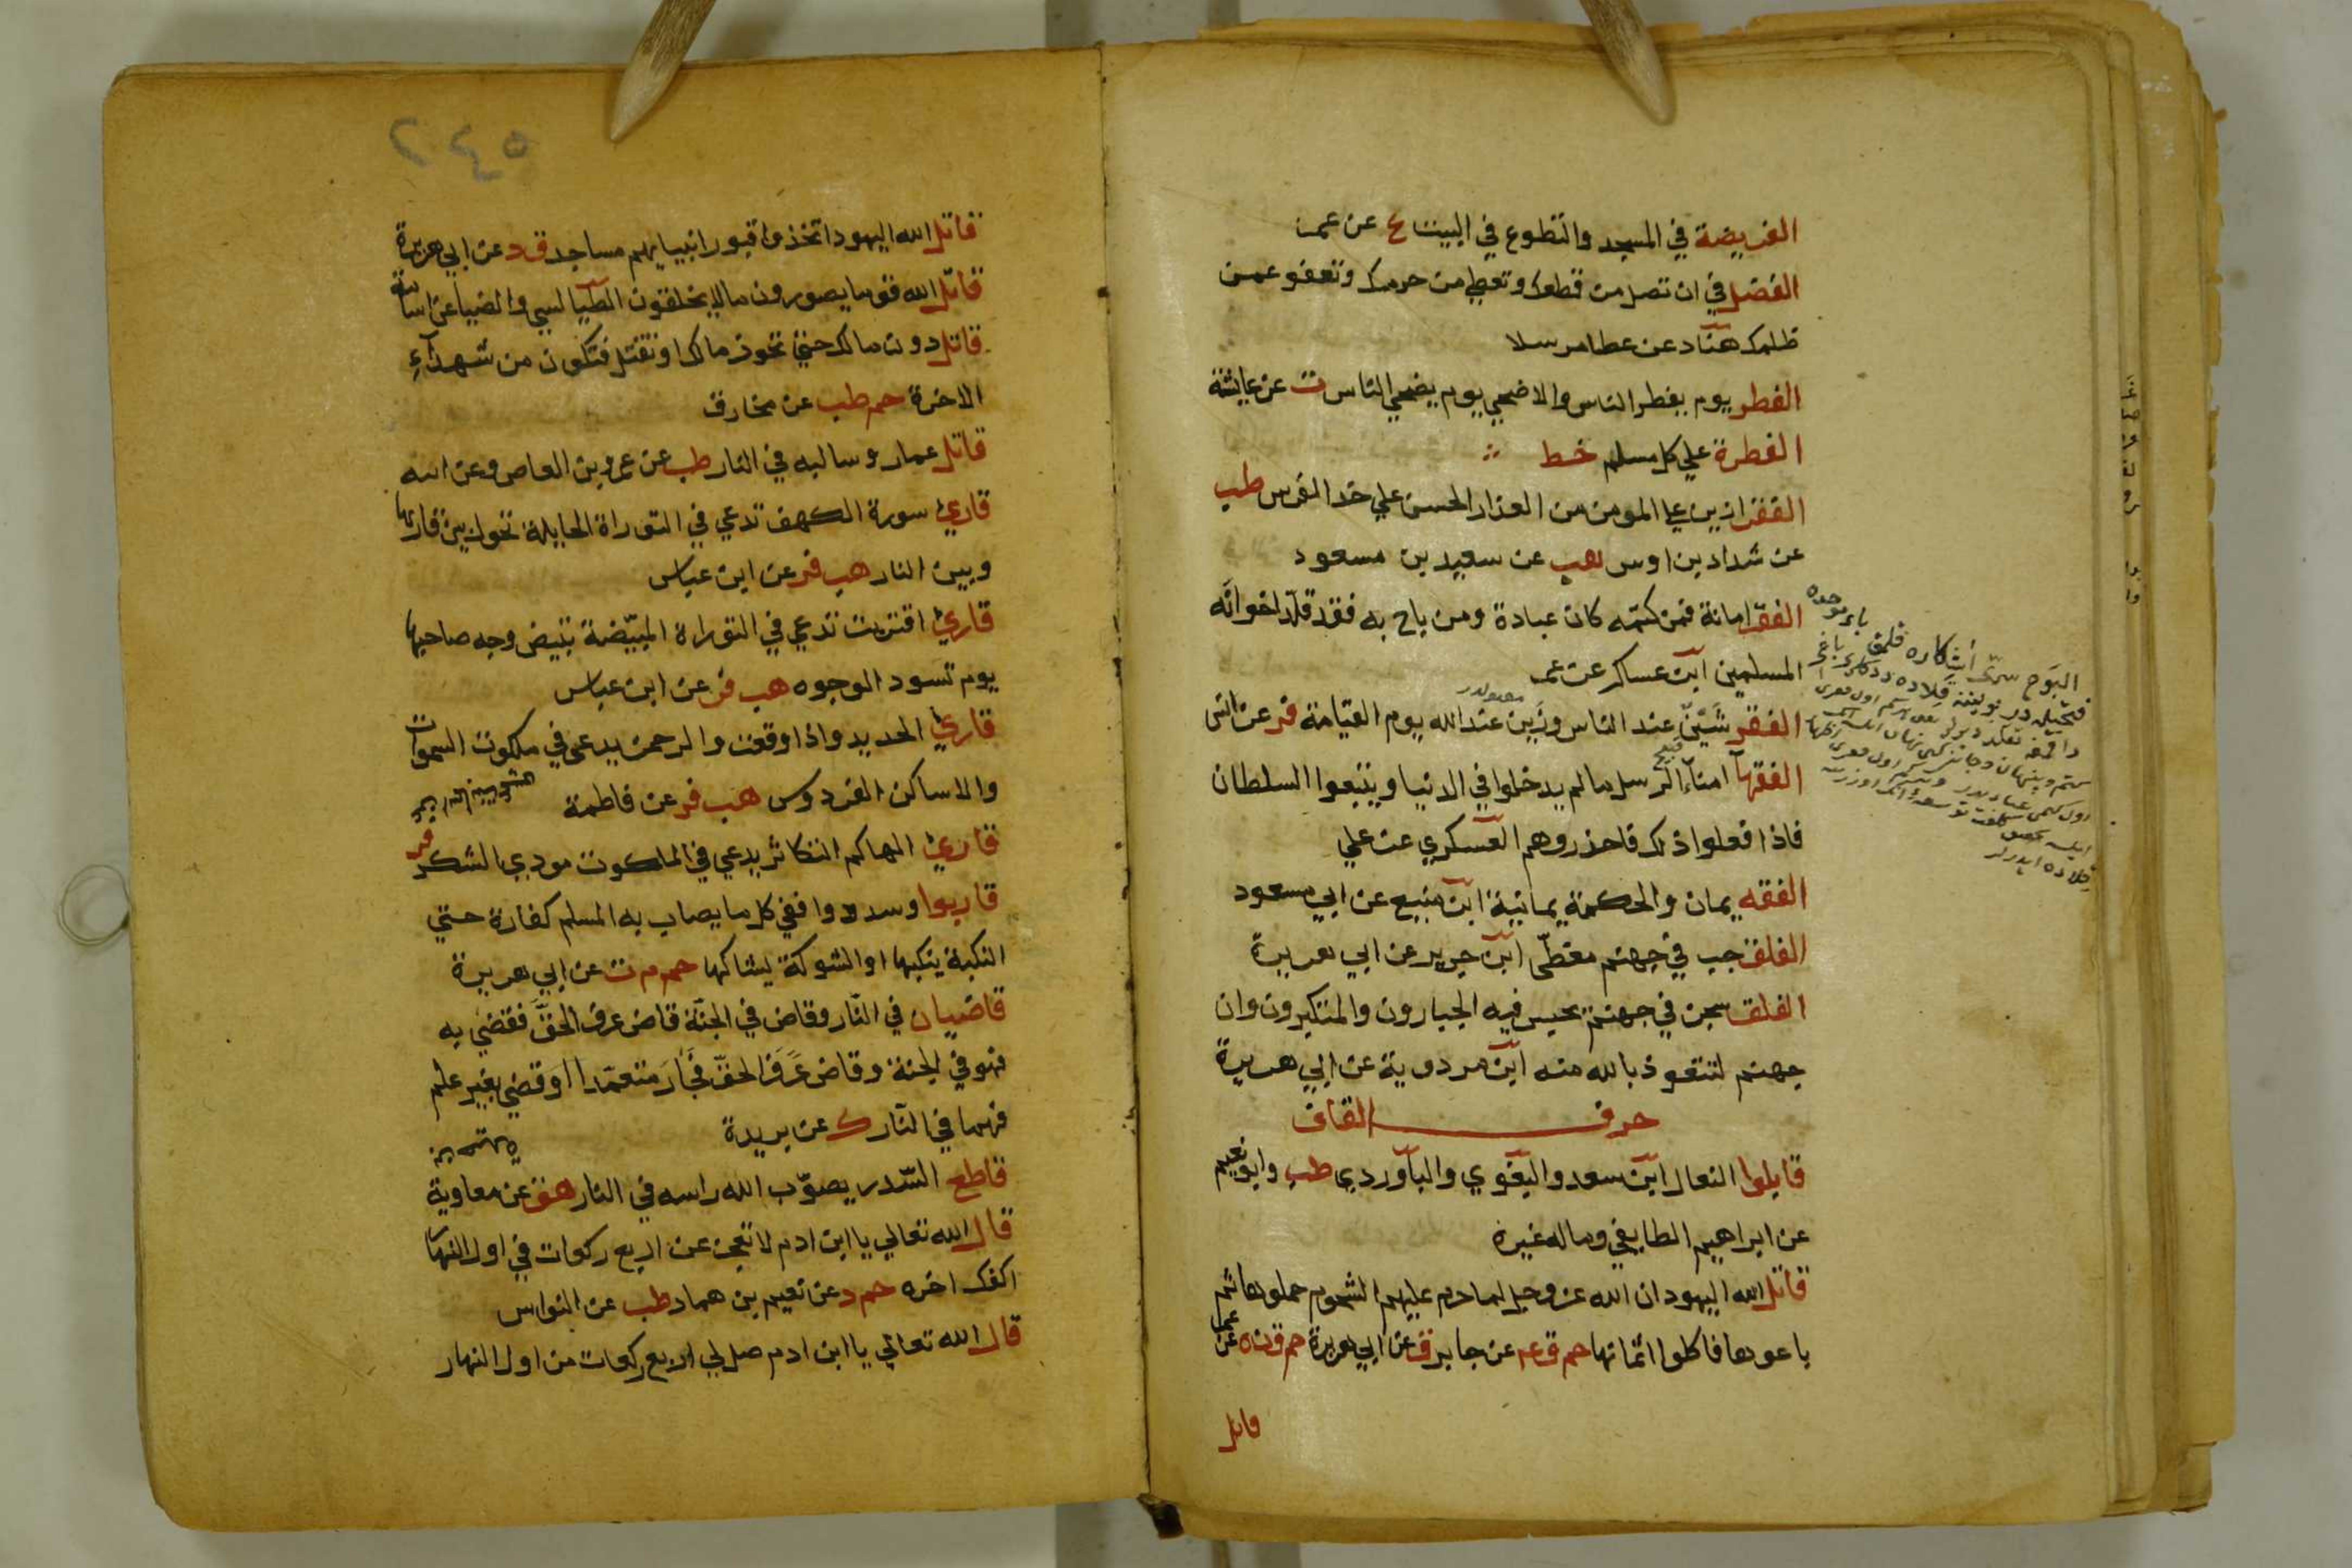 الفريضة في المسجد والتطوع في البيت ع عن عمر
الفضل في ان تصل من قطعك وتعطي من حرمك وتعفو عمن
ظلمك هناد عن عطا مرسلا
الفطر يوم يفطر الناس والاضحي يوم يضحي الناس ت عن عايشة
الفطرة علي كل مسلم خط
الفقر ازين علي المومن من العذار الحسن علي خد الفرس طب
عن شداد بن اوس هب عن سعيد بن مسعود
الفقر امانة فمن كتمه كان عبادة ومن باح به فقد قلد اخوانه
المسلمين ابن عساكر عن عمر
الفقر شين عند الناس وزين عند الله يوم القيامة فر عن انس
الفقهآ امنآء الرسل مالم يدخلوا في الدنيا ويتبعوا السلطان
فاذا فعلوا ذلك فاحذروهم العسكري عن علي
الفقه يمان والحكمة يمانية ابن منيع عن ابي مسعود
الفلق جب في جهنم مغطي ابن جرير عن ابي هريرة
الفلق سجن في جهنم يحبس فيه الجبارون والمتكبرون وان
جهنم لتتعوذ بالله منه ابن مردوية عن ابي هريرة
حرف القاف
قابلوا النعال ابن سعد والبغوي والباوردي طب وابو نعيم
عن ابراهيم الطايفي وماله غيره
قاتل الله اليهود ان الله عز وجل لما حرم عليهم الشحوم جملوها ثم
باعوها فاكلوا اثمانها حم ق عه عن جابر ق عن ابي هريرة حم ق ن ه عن عمر
قاتل
٥٤٢
قاتل الله اليهود اتخذوا قبور انبيايهم مساجد ق د عن ابي هريرة
قاتل الله قوما يصورون مالا يخلقون الطيالسي والضيا عن اسامة
قاتل دون مالك حتي تحوذ مالك او تقتل فتكون من شهدآء
الاخرة حم طب عن مخارق
قاتل عمار وسالبه في النار طب عن عمرو بن العاص وعن ابنه
قاري سورة الكهف تدعي في التوراة الحايلة تحول بين قاريها
وبين النار هب فر عن ابن عباس
قاري اقتربت تدعي في التوراة المبيضة تبيض وجه صاحبها
يوم تسود الوجوه هب فر عن ابن عباس
قاري الحديد واذا وقعت والرحمن يدعي في ملكوت السموات
والا ساكن الفردوس هب فر عن فاطمة
قاري الهاكم التكاثر يدعي في الملكوت مودي الشكر فر
قاربوا وسددوا ففي كل ما يصاب به المسلم كفارة حتي
النكبة ينكبها او الشوكة يشاكها حم م ت عن ابي هريرة
قاضيان في النار وقاض في الجنة قاض عرف الحق فقضي به
فهو في الجنة وقاض عرف الحق فجار متعمدا او قضي بغير علم
فهما في النار ك عن بريدة
قاطع السدر يصوب الله راسه في النار هق عن معاوية
قال الله تعالي يا ابن ادم لا تعجز عن اربع ركعات في اول النهار
اكفك اخره حم د عن نعيم بن همار طب عن النواس
قال الله تعالي يا ابن ادم صل لي اربع ركعات من اول النهار